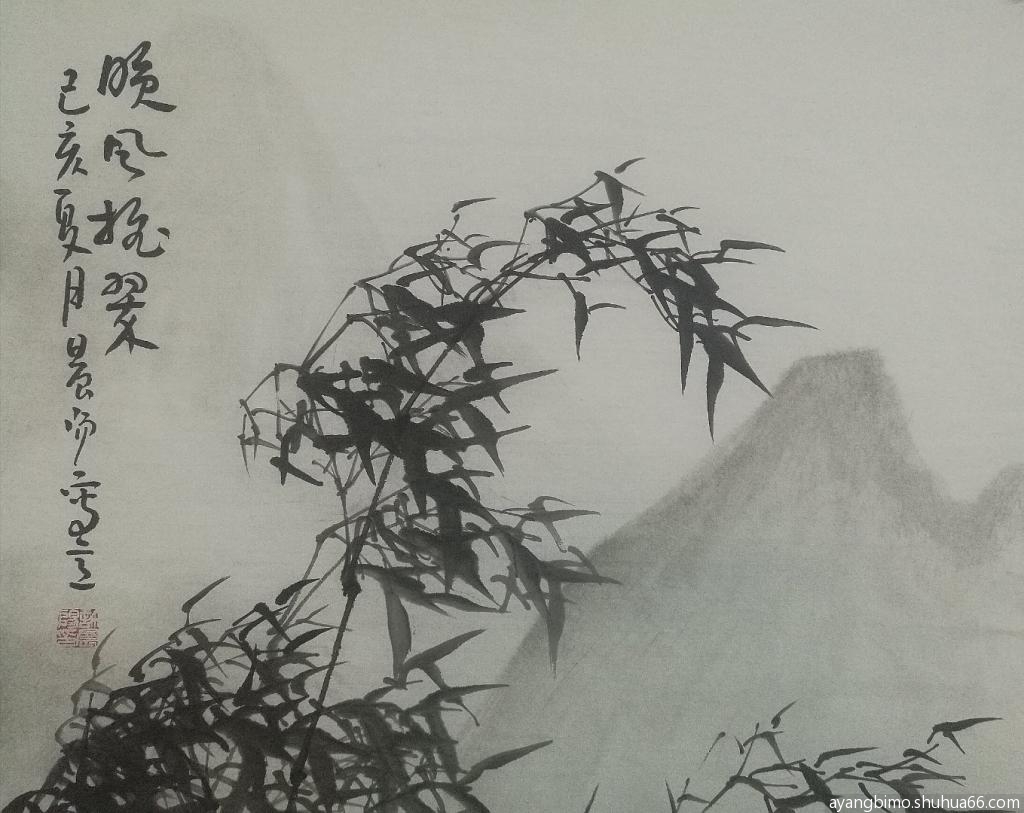 晚风摇翠
己亥夏月晨阳写意
ayangbimo.shuhua66.com